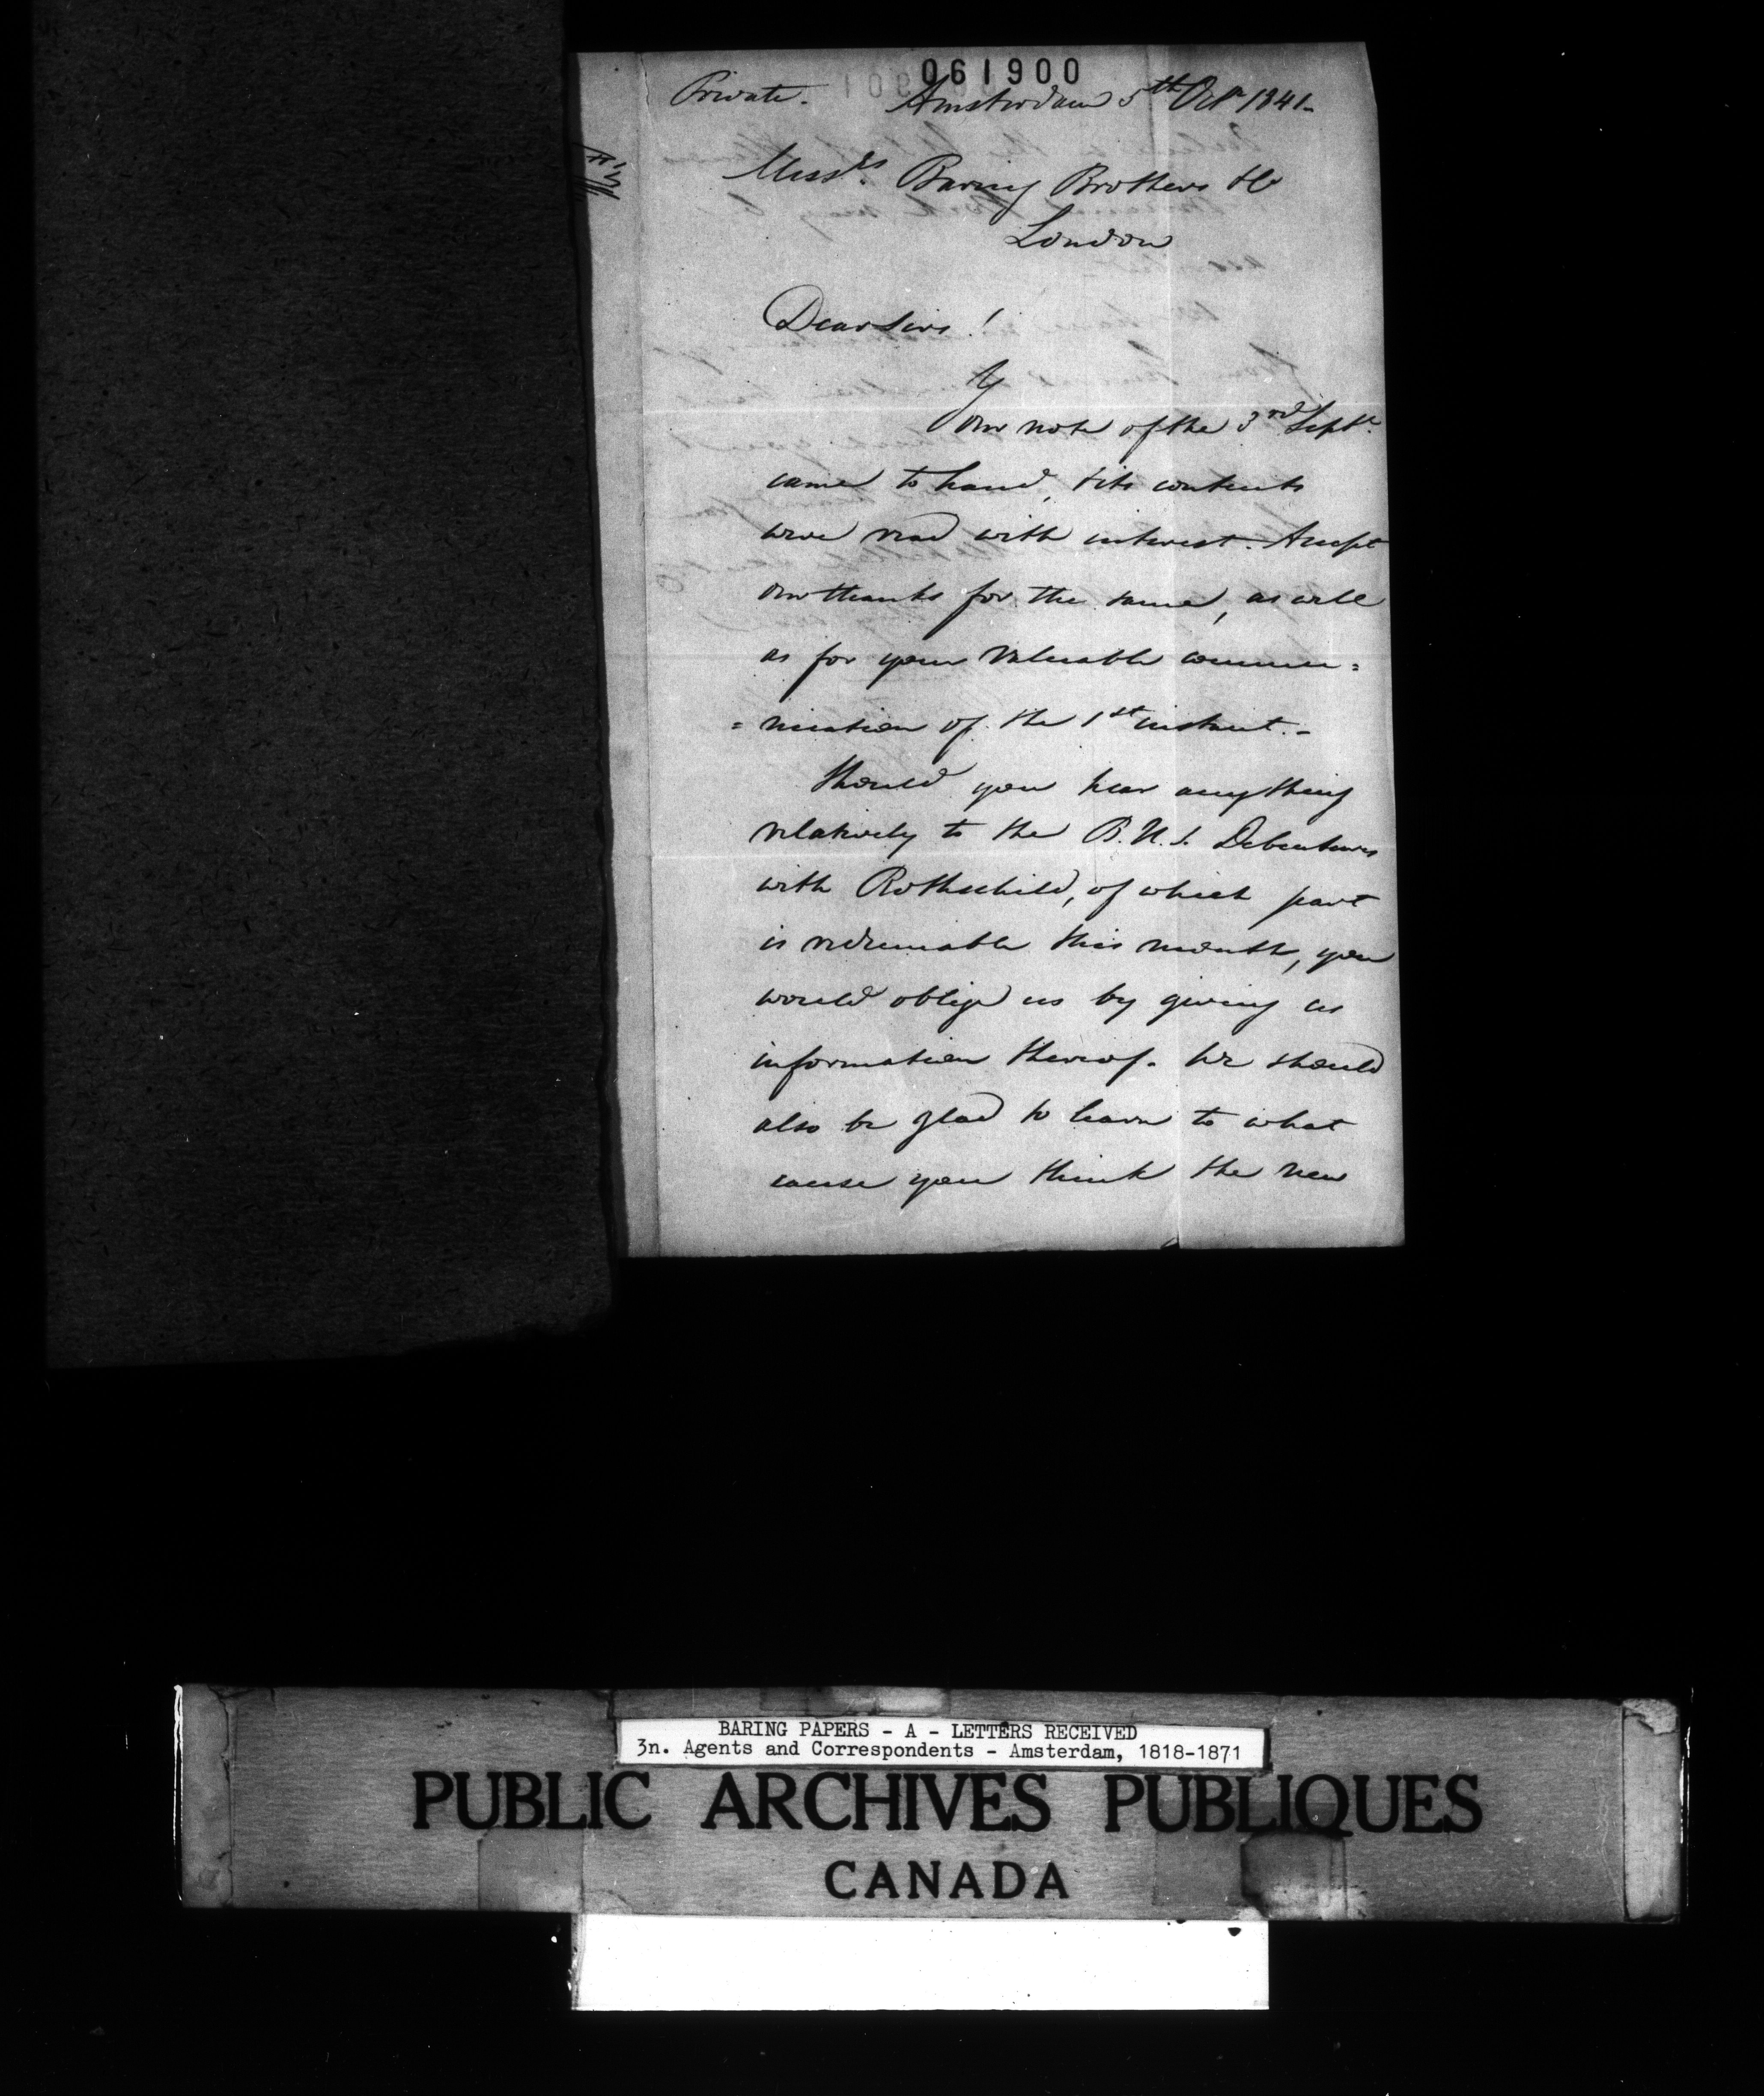 061900
Private. Amsterdam 5th Octr 1841.
Messrs. Baring Brothers & Co
London
Dear Sirs!
Your note of the 3rd Septr.
came to hand, & its contents
were read with interest. Accept
our thanks for the same, as well
as for your valuable commu=
=nication of the 1st instant.-
Should you hear anything
relatively to the B.U.S. Debentures
with Rothschild, of which part
is redeemable this month, you
would oblige us by giving us
information thereof. We should
also be glad to learn to what
cause you think the new
BARING PAPERS - A - LETTERS RECEIVED
3n. Agents and Correspondents - Amsterdam, 1818-1871
PUBLIC ARCHIVES PUBLIQUES
CANADA